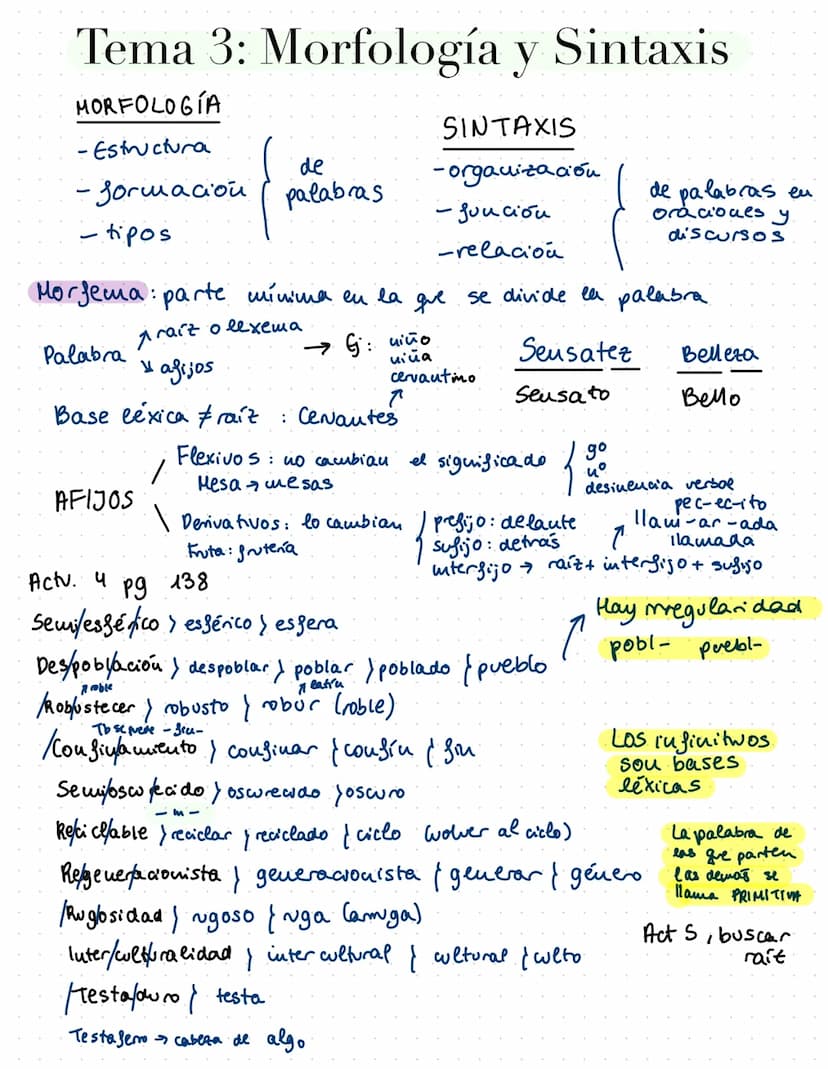 Tema 3: Morfología y Sintaxis
MORFOLOGÍA
- Estructura
- formación
- tipos
de palabras
SINTAXIS
- organización
- función
- relación
de palabras en
oraciones y
discursos
Morfema: parte mínima en la que se divide la palabra
Palabra ↗ raíz o lexema
↘ afijos
→ Ej: niño
niña
cervantino
Sensatez
Sensato
Belleza
Bello
Base léxica ≠ raíz : Cervantes
AFIJOS
Flexivos: no cambian el significado
Mesa → mesas
gº
nº
desinencia verbal
Derivativos: lo cambian
Fruta: frutería
prefijo: delante
sufijo: detrás
interfijo → raíz + interfijo + sufijo
pec-ec-ito
llam-ar-ada
llamada
Actv. 4 pg 138
Semi/esfér/ico > esférico > esfera
Des/pobl/ación > despoblar > poblar > poblado > pueblo
Hay irregularidad
pobl- puebl-
↗ roble
↗ latín
/Robustecer > robusto > robur (roble)
/Confin/amiento > confinar > confín > fin
Los infinitivos
son bases
léxicas
> oscurecido > oscuro
> reciclar > reciclado > ciclo (volver al ciclo)
La palabra de
las que parten
las demás se
llama PRIMITIVA
Re/gener/acionista > generacionista > generar > género
/Rug/osidad > rugoso > ruga (arruga)
Inter/cult/uralidad > intercultural > cultural > culto
Act 5, buscar
raíz
/Testa/duro > testa
Testaferro → cabeza de algo